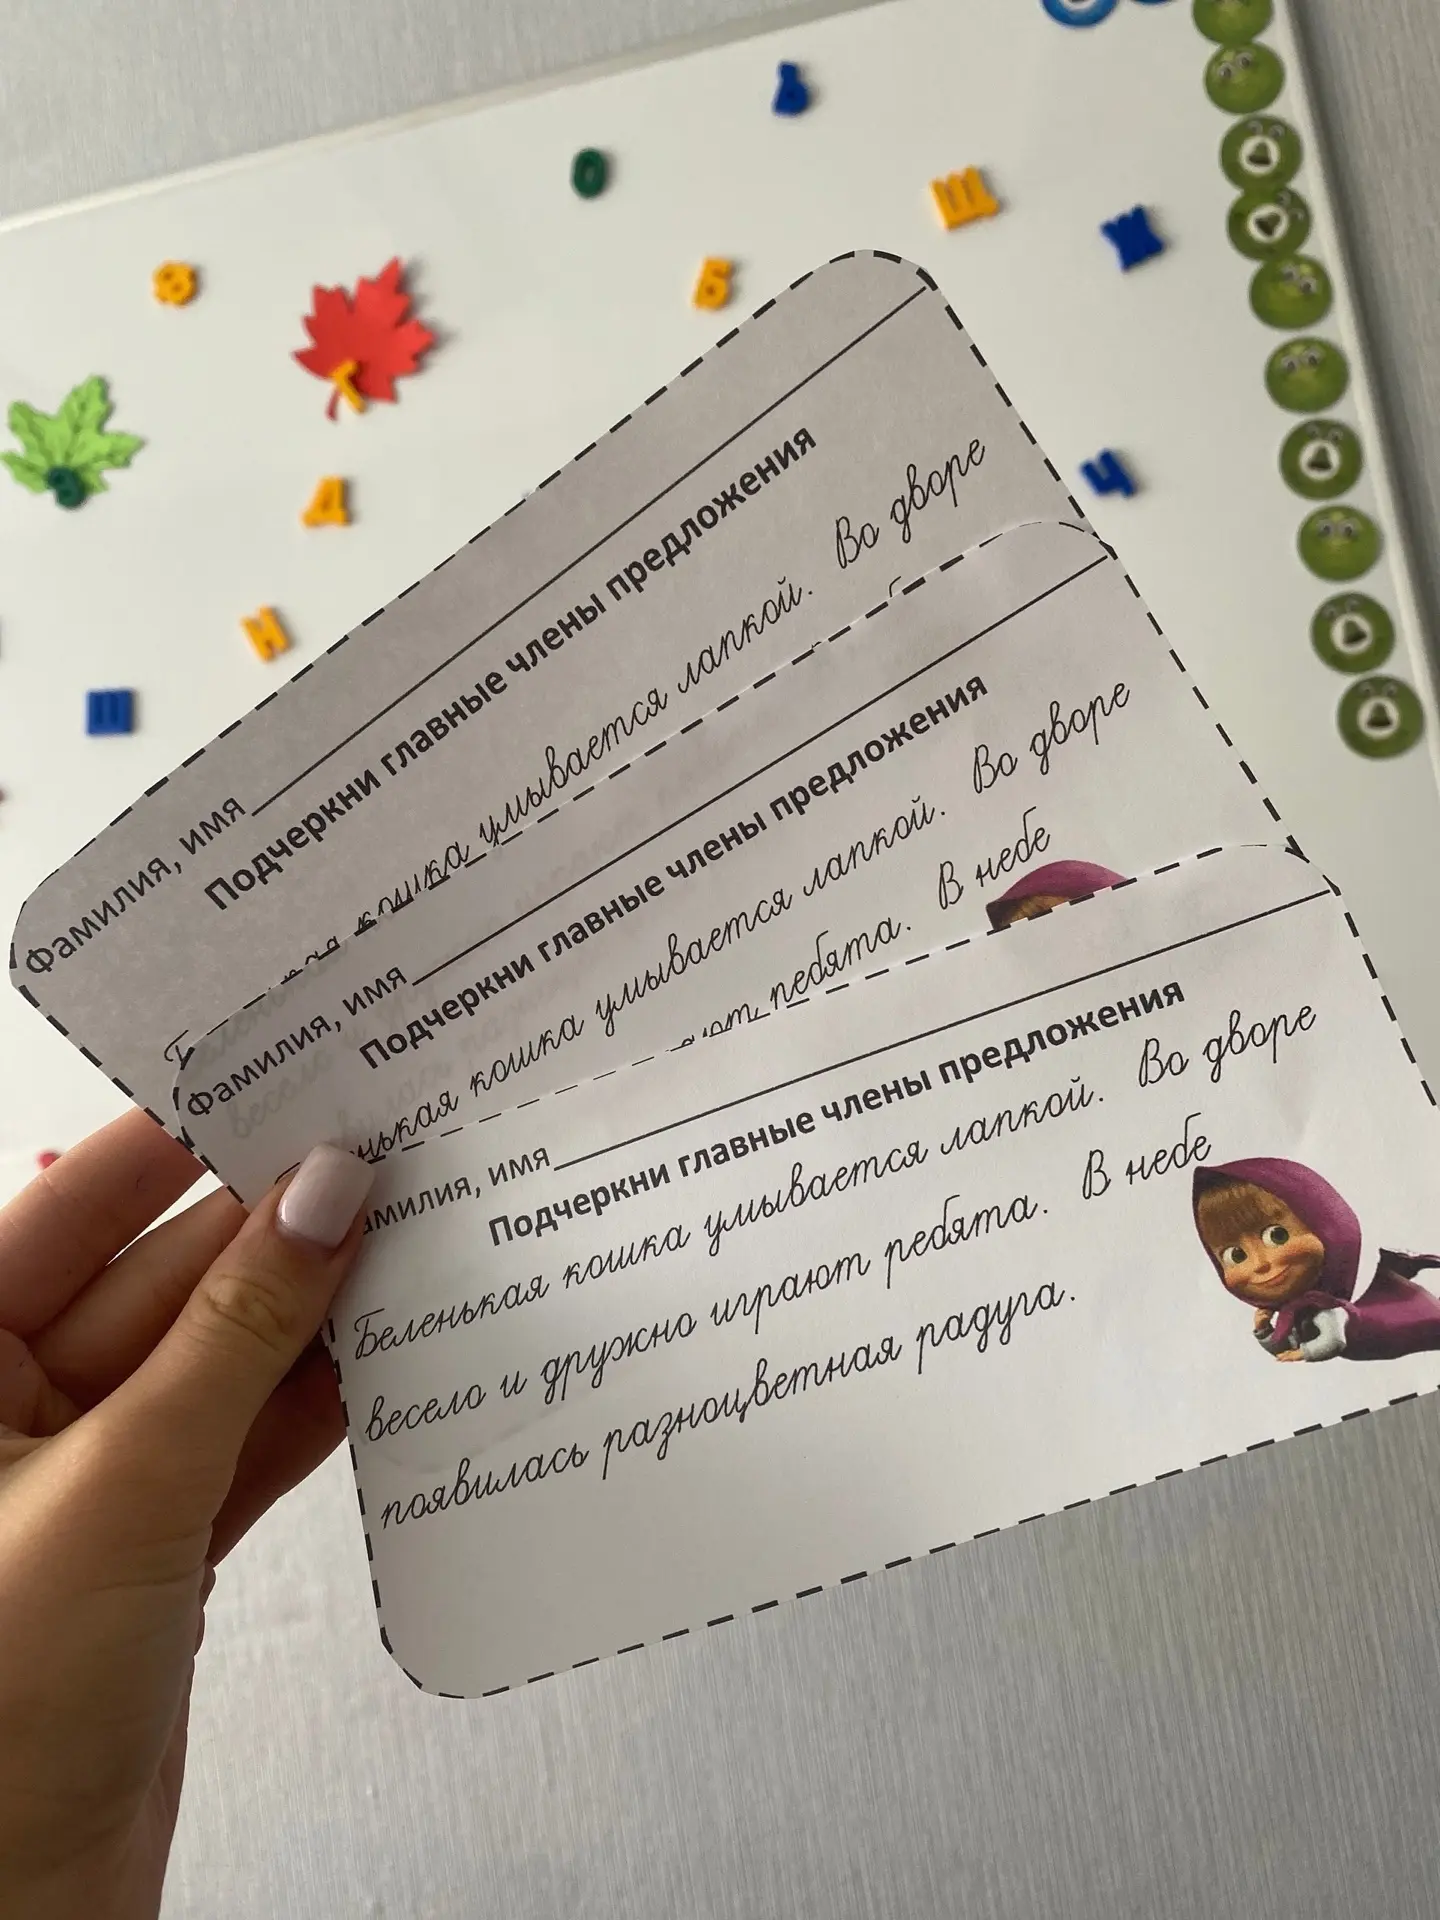 Фамилия, имя
Подчеркни главные члены предложения
кошка умывается лапкой. Во дворе
Фамилия, имя
Подчеркни главные члены предложения
нькая кошка умывается лапкой. Во дворе
ребята. В небе
амилия, имя
Подчеркни главные члены предложения
Беленькая кошка умывается лапкой. Во дворе
весело и дружно играют ребята. В небе
появилась разноцветная радуга.
О
Щ
Ж
Б
Т
Д
Ч
И